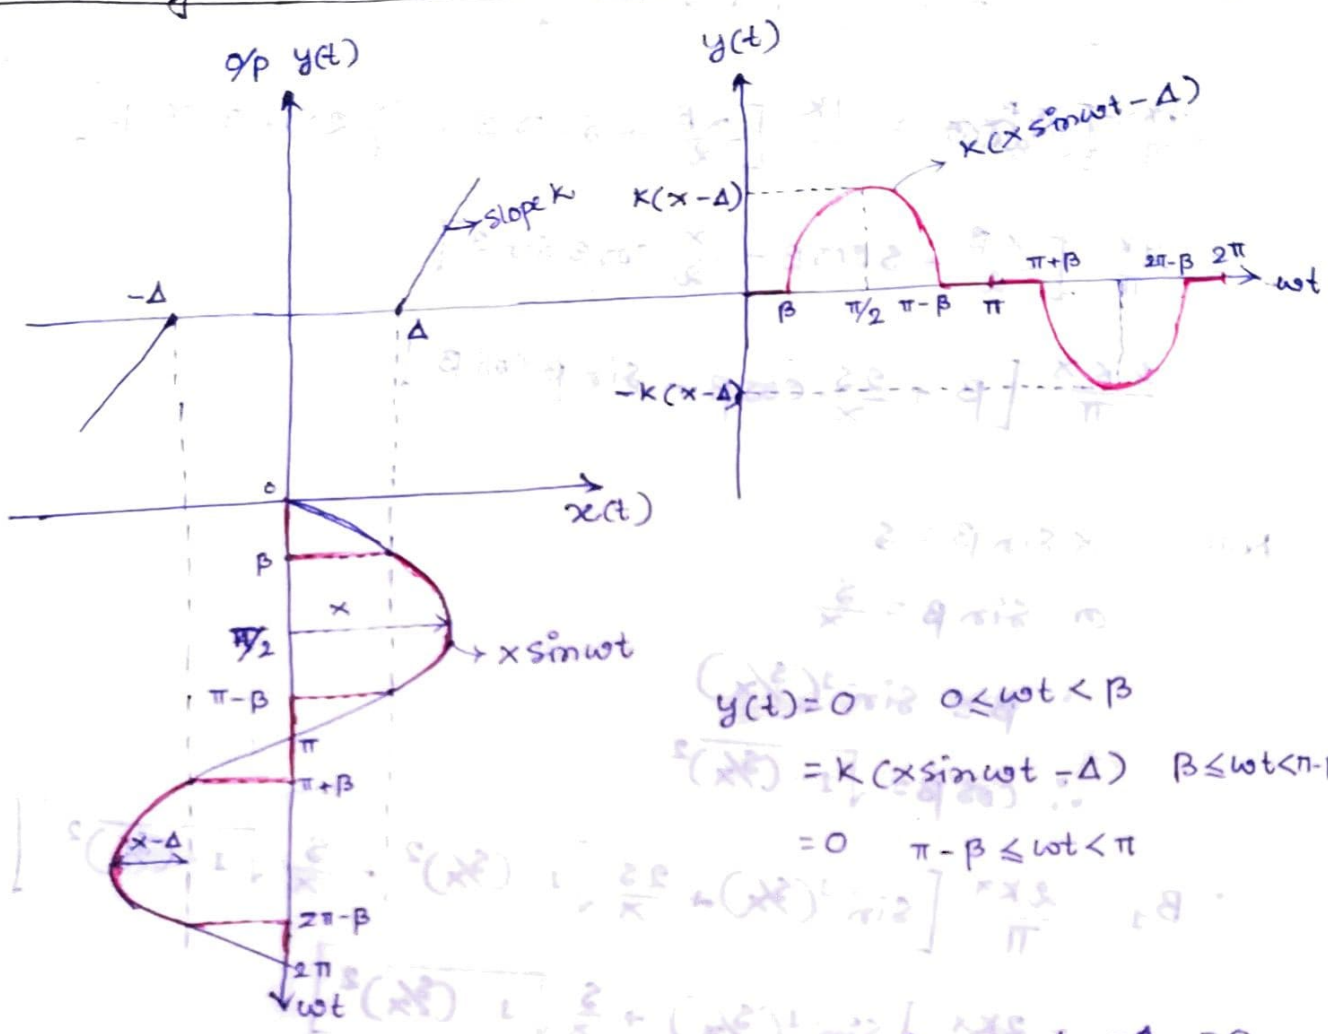 o/p y(t)
slope K
-Δ
Δ
0
x(t)
β
x
π/2
x sinωt
π-β
π
π+β
x-Δ
2π-β
2π
ωt
y(t)
K(x sinωt - Δ)
K(x-Δ)
π+β
2π-β
2π
ωt
β
π/2
π-β
π
-K(x-Δ)
y(t)=0 0≤ωt<β
=K(xsinωt-Δ) β≤ωt<π-β
=0 π-β≤ωt<π